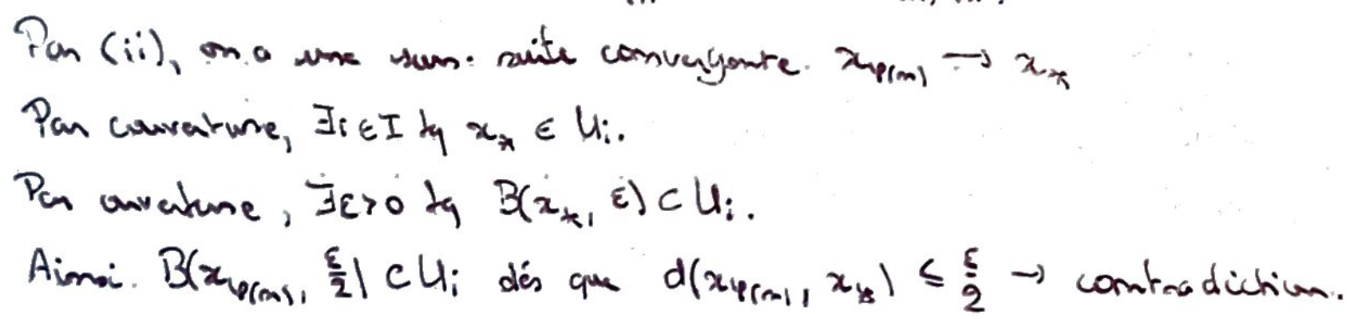 Par (ii), on a une sous-suite convergente. x_{φ(n)} → x_*
Par couverture, ∃i ∈ I tq x_* ∈ U_i.
Par ouverture, ∃ε>0 tq B(x_*, ε) ⊂ U_i.
Ainsi. B(x_{φ(n)}, ε/2) ⊂ U_i dès que d(x_{φ(n)}, x_*) ≤ ε/2 → contradiction.